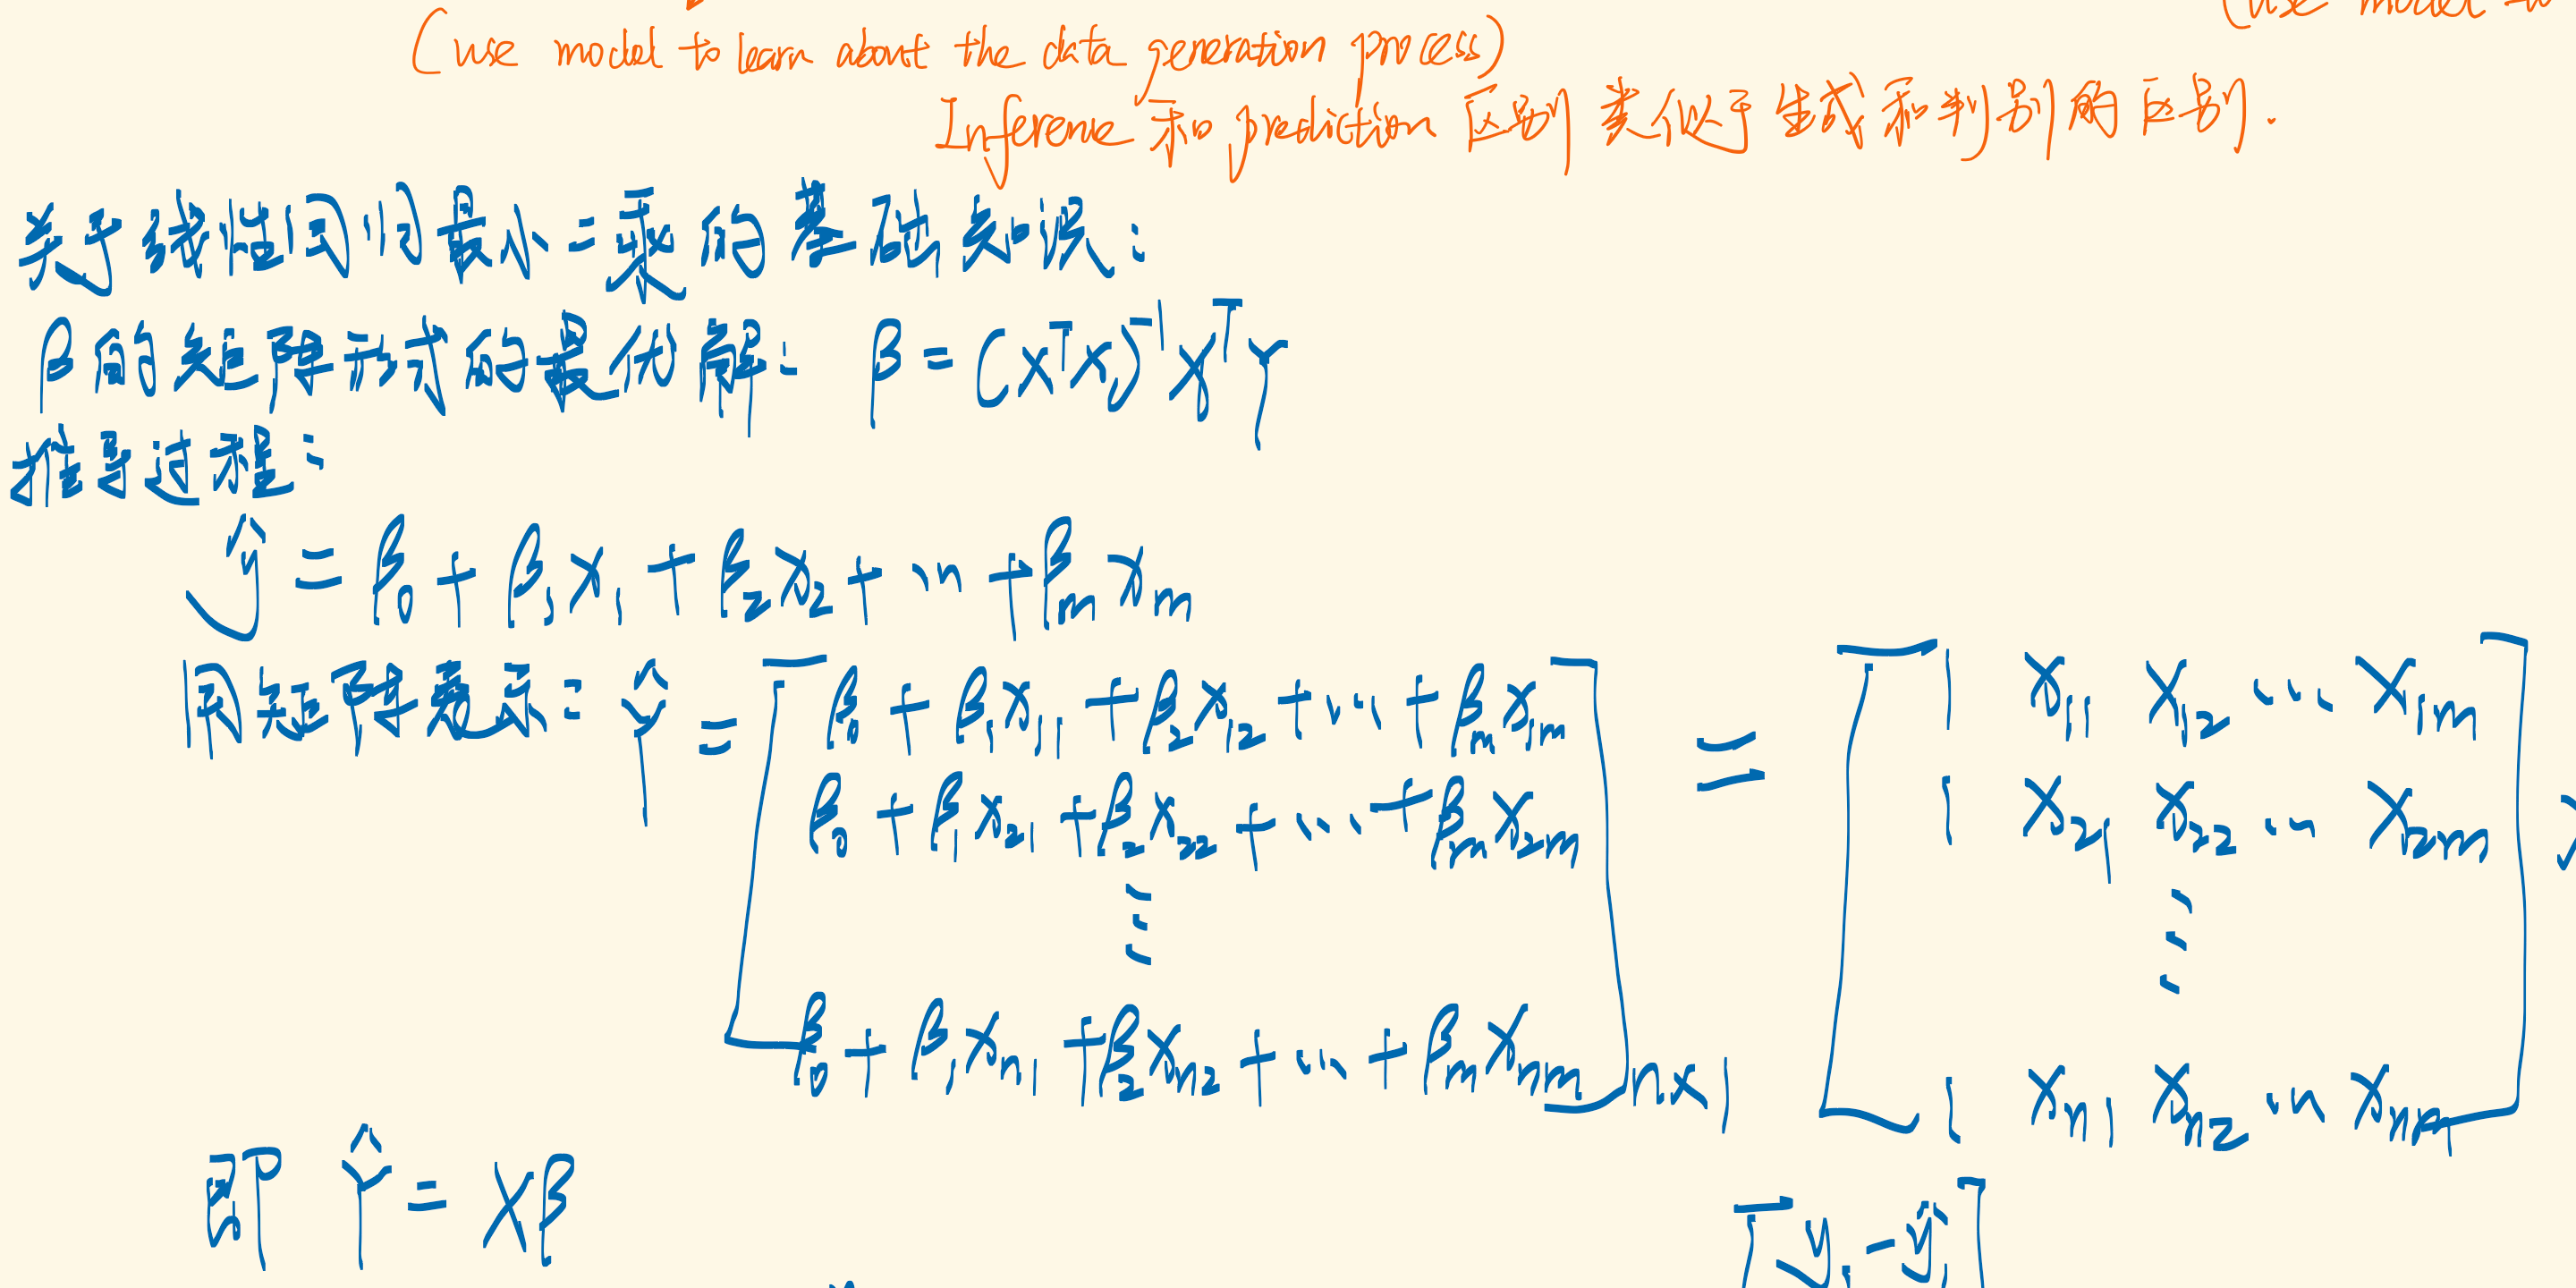 (use model to learn about the data generation process)
(use model to
Inference 和 prediction 区别 类似于 生成和判别的区别.
关于线性回归最小二乘的基础知识：
β的矩阵形式的最优解： β = (XᵀX)⁻¹XᵀY
推导过程：
ŷ = β₀ + β₁x₁ + β₂x₂ + ... + βₘxₘ
用矩阵表示： Ŷ = [β₀ + β₁x₁₁ + β₂x₁₂ + ... + βₘx₁ₘ = [1 x₁₁ x₁₂ ... x₁ₘ]
β₀ + β₁x₂₁ + β₂x₂₂ + ... + βₘx₂ₘ 1 x₂₁ x₂₂ ... x₂ₘ
⋮ ⋮
β₀ + β₁xₙ₁ + β₂xₙ₂ + ... + βₘxₙₘ]n×1 1 xₙ₁ xₙ₂ ... xₙₘ
即 Ŷ = Xβ
[y₁ - ŷ₁]